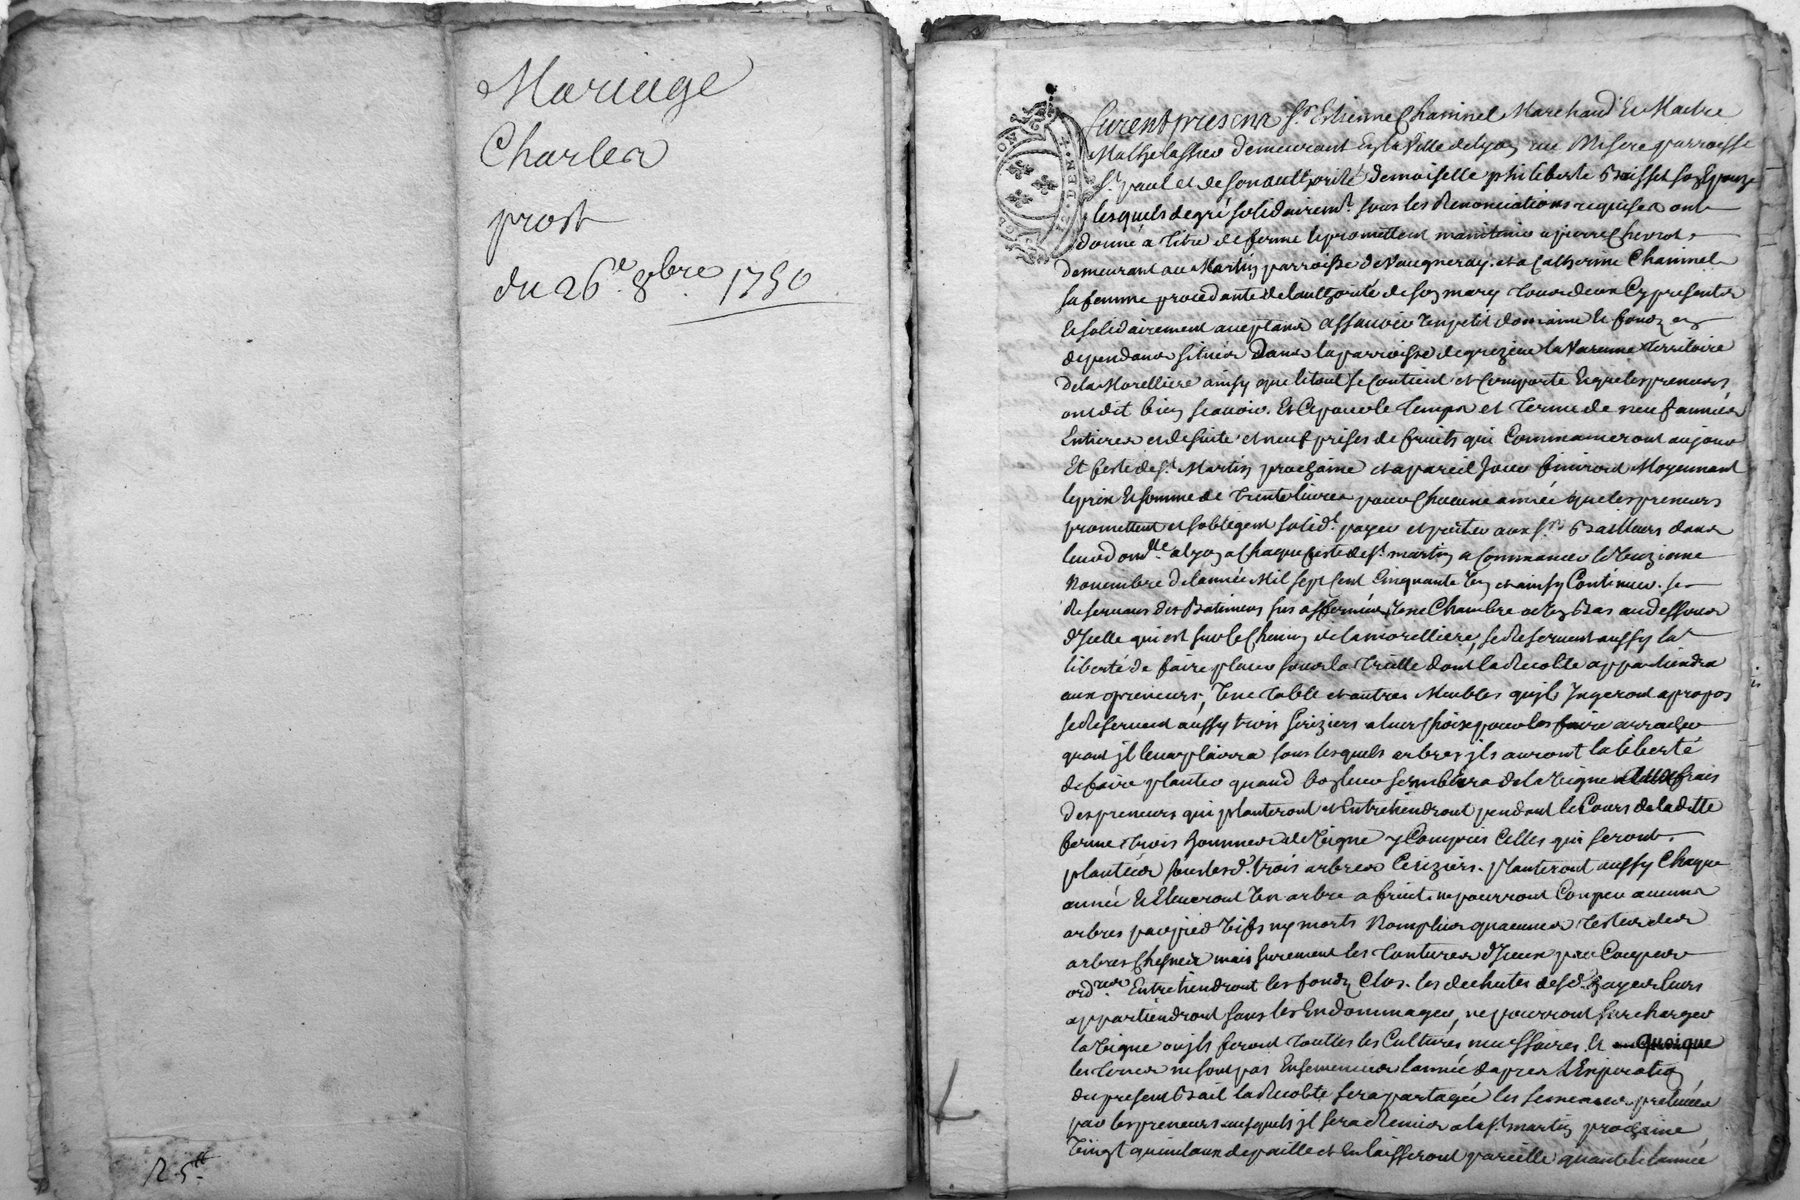 Mariage
Charles
prost
du 26e. 8bre 1750
R 5tt
G DE LYON
Furent presens Sr. Estienne Chaininel Marchand Et Maitre
Mathelassier demeurant En la Ville de Lyon rue Misere parroisse
St. paul et de son authorité demoiselle philiberte Baisset son Epouze
lesquels de gré solidairemt. sous les Renonciations requises ont
donné a titre de ferme Et promettent maintenir a pierre Chevrot
demeurant au Martin parroisse de Vaugneray. et a Catherine Chaininel
sa femme procedante de lauthorité de son mary tous deux Cy presents
Et solidairement acceptans assavoir Un petit domaine Et fonds en
dependans situés dans la parroisse de grezieu la Varenne territoire
de la Morelliere ainsy que le tout se Contient et Comporte Et que les preneurs
ont dit bien scavoir. Et Ce pour le temps et terme de neuf années
Entieres et de suite et neuf prises de fruits qui Commanceront au jour
Et feste de St. Martin prochaine et a pareil jour finiront Moyennant
le prix Et somme de trente livres pour Chacune année que les preneurs
promettent et sobligent solidt. payer et porter aux Srs. Bailleurs dans
leur domlle. a Lyon a Chaque feste de St. martin a Commancer le Unzieme
Novembre de lannée Mil sept Cent Cinquante Un et ainsy Continuer. se
Reservans des Batimens sus affermés Une Chambre et Un Bas au dessous
dIcelle qui est sur le Chemin de la morelliere, se Reservent aussy la
liberté de faire placer sous la treille dont la Recolte appartiendra
aux preneurs, Une table et autres Meubles quils Jugeront a propos
se Reservent aussy trois Ceriziers a leur Choix pour les faire arracher
quand jl leur plaira sous lesquels arbres jls auront la liberté
de faire planter quand bon leur semblera de la Vigne frais
des preneurs qui planteront et Entretiendront pendant le Cours de la ditte
ferme trois hommées de Vigne y Compris Celles qui seront
plantées sous lesd. trois arbres Ceriziers. planteront aussy Chaque
année Et Eleveront Un arbre a fruit. ne pourront Couper aucuns
arbres par pied Vifs ny morts Non plus quaucunes testes des
arbres Chesnes mais surement les tontures dIceux par Coupes
ordres. Entretiendront les fonds Clos. les dechutes desd. hayes leurs
appartiendront sans les Endommager, ne pourront surcharger
la Vigne ou jls feront touttes les Cultures necessaires. Et quoique
les terres ne sont pas Ensemencées lannée dapres lExpiration
du present Bail la Recolte sera partagée les semences prelevées
par les preneurs auxquels jl sera Remis a la St. martin prochaine
Vingt quintaux de paille et En laisseront pareille quantité lannée